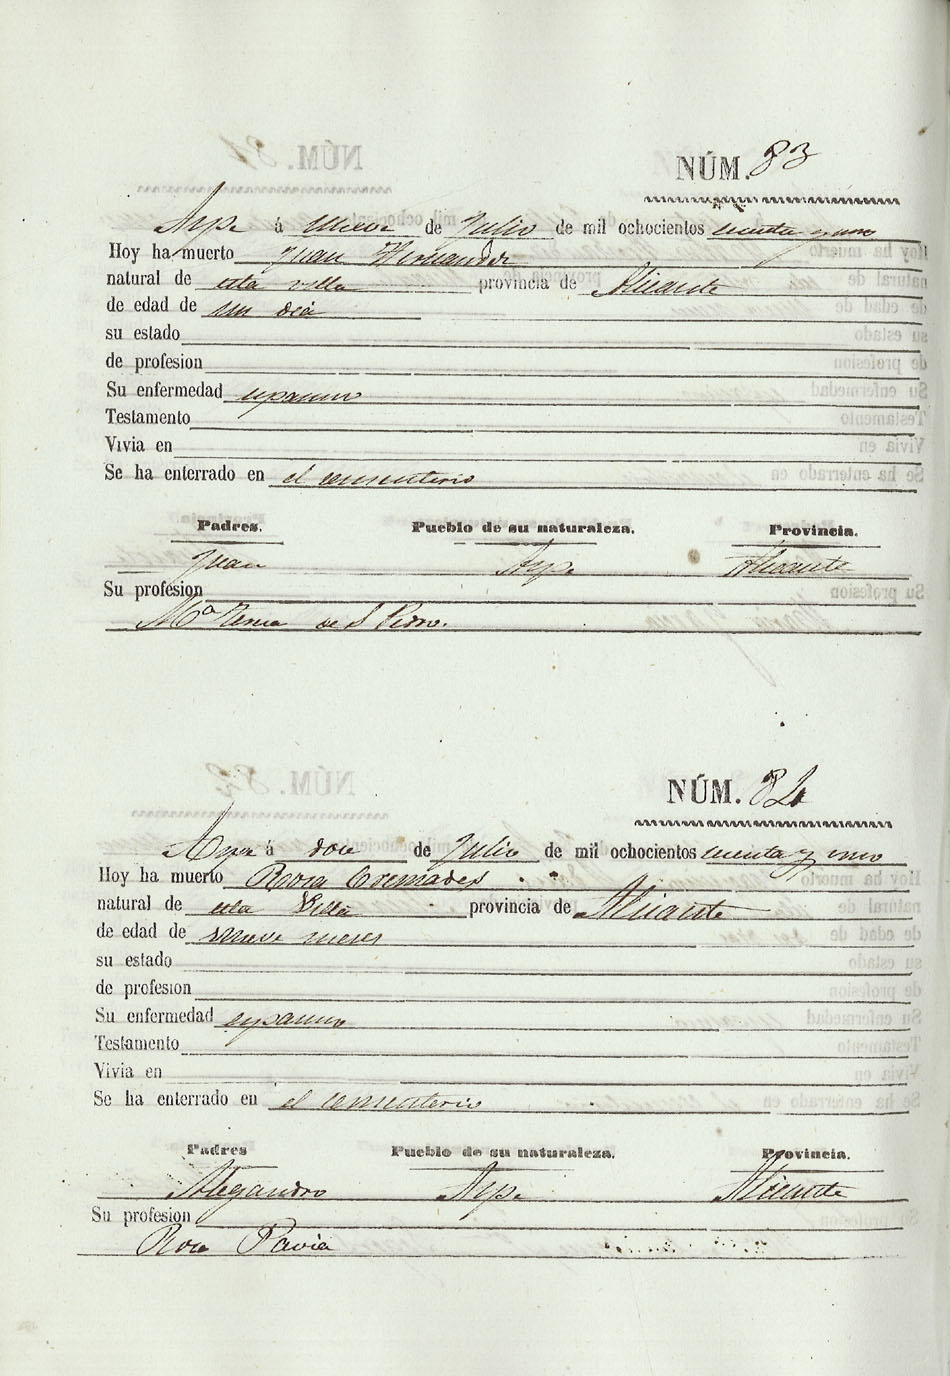 NÚM. 83
Aspe á nueve de Julio de mil ochocientos cuenta y uno
Hoy ha muerto Juan Hernandez
natural de esta villa provincia de Alicante
de edad de un dia
su estado
de profesion
Su enfermedad espasmo
Testamento
Vivia en
Se ha enterrado en el cementerio
Padres. Pueblo de su naturaleza. Provincia.
Juan Aspe Alicante
Su profesion
Mª Teresa de S Pedro.
NÚM. 84
Aspe á doce de Julio de mil ochocientos cuenta y uno
Hoy ha muerto Rosa Cremades
natural de esta Villa provincia de Alicante
de edad de nueve meses
su estado
de profesion
Su enfermedad espasmo
Testamento
Vivia en
Se ha enterrado en el cementerio
Padres Pueblo de su naturaleza. Provincia.
Alegandro Aspe Alicante
Su profesion
Rosa Pavia